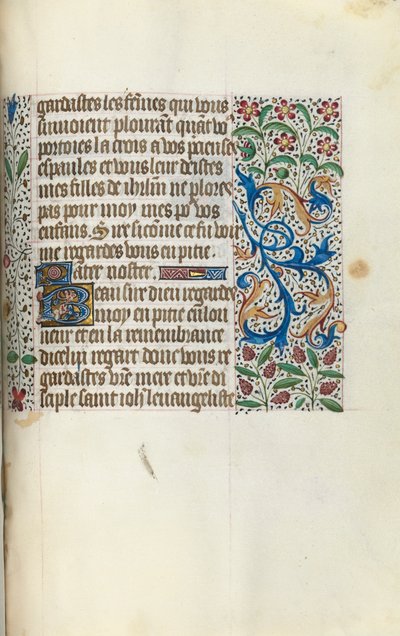 gardastes les fẽmes qui vous
suiuoient plourãt quãt vo᷒
porties la crois a vos preuses
espaules et vous leur deistes
mes filles de ihrlm̃ ne plores
pas pour moy mes po᷑ vos
enfans. Sire sicõme ce fu voir
me regardes vous en pitie.
Pater noster.
Beau sire dieu regardes
moy en pitie en lon
neur et en la remembrance
dicelui regart dont vous re
gardastes vr̃e mere et vr̃e di
sciple saint ioh̃ leuangeliste